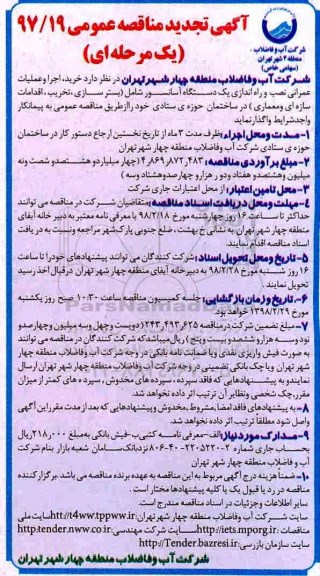 آگهی تجدید مناقصه عمومی ۹۷/۱۹
(یک مرحله ای)
شرکت آب و فاضلاب
منطقه ۴ شهر تهران
(سهامی خاص)
شرکت آب وفاضلاب منطقه چهار شهر تهران در نظر دارد خرید، اجرا و عملیات
عمرانی نصب و راه اندازی یک دستگاه آسانسور شامل (بستر سازی، تخریب، اقدامات
سازه ای و معماری) در ساختمان حوزه ی ستادی خود را از طریق مناقصه عمومی به پیمانکار
واجد شرایط واگذار نماید
۱- مدت و محل اجرا: ظرف مدت ۳ ماه از تاریخ نخستین ارجاع دستور کار در ساختمان
حوزه ی ستادی شرکت آب وفاضلاب منطقه چهار شهر تهران
۲- مبلغ برآوردی مناقصه: ۴,۸۶۹,۸۷۲,۴۸۳ (چهار میلیارد و هشتصد و شصت و نه
میلیون و هشتصد و هفتاد و دو هزار و چهارصد و هشتاد و سه)
۳- محل تامین اعتبار: از محل اعتبارات جاری شرکت
۴- مهلت و محل دریافت اسناد مناقصه: متقاضیان شرکت در مناقصه می توانند
حداکثر تا ساعت ۱۶ روز چهارشنبه مورخ ۹۸/۲/۱۸ با معرفی نامه معتبر به دبیرخانه آبفای
منطقه چهار شهر تهران به نشانی خ بهشت، ضلع جنوبی پارک شهر مراجعه ونسبت به دریافت
اسناد مناقصه اقدام نمایند.
۵- تاریخ و محل تحویل اسناد: شرکت کنندگان می توانند پیشنهادهای خود را تا ساعت
۱۶ روز شنبه مورخ ۹۸/۲/۲۸ به دبیرخانه آبفای منطقه چهار شهر تهران در قبال اخذ رسید
تحویل نمایند.
۶- تاریخ و زمان بازگشایی: جلسه کمیسیون مناقصه ساعت ۱۰:۳۰ صبح روز یکشنبه
مورخ ۱۳۹۸/۲/۲۹ خواهد بود.
۷- مبلغ تضمین شرکت در مناقصه ۲۴۳,۴۹۳,۶۲۵ (دویست و چهل و سه میلیون و چهارصد و
نود و سه هزار و ششصد و بیست و پنج) ریال میباشد که شرکت کنندگان در مناقصه می توانند
به صورت فیش واریزی نقدی و یا ضمانت نامه بانکی در وجه شرکت آب وفاضلاب منطقه چهار
شهر تهران و یا چک بانکی تضمینی در وجه شرکت آب وفاضلاب منطقه چهار شهر تهران ارسال
نمایند و به پیشنهادهایی که فاقد سپرده، سپرده های مخدوش، سپرده های کمتر از میزان
مقرر، چک شخصی و نظایر آن ترتیب اثر داده نخواهد شد.
۸- به پیشنهادهای فاقد امضا، مشروط، مخدوش و پیشنهادهایی که بعد از مدت مقرر این آگهی
واصل شود مطلقا ترتیب اثر داده نخواهد شد.
۹- مدارک مورد نیاز: الف-معرفی نامه کتبی ب-فیش بانکی به مبلغ ۲۱۸,۰۰۰ ریال
بحساب جاری شماره نزد بانک سامان شعبه بازار بنام شرکت
آب و فاضلاب منطقه چهار شهر تهران
۱۰- ضمنا هزینه درج آگهی مربوط به این مناقصه به عهده برنده مناقصه می باشد. برگزار کننده
مناقصه در رد یا قبول یک یا کلیه پیشنهادها مختار است.
سایر اطلاعات و جزئیات در اسناد مناقصه مندرج است.
سایت شرکت آب وفاضلاب منطقه چهار شهر تهران: http://t4ww.tppww.ir سایت ملی
مناقصات http://iets.mporg.ir سایت شرکت مهندسی: http:tender.nww.co.ir
سایت سازمان بازرسی: http://Tender.bazresi.ir
شرکت آب و فاضلاب منطقه چهار شهر تهران